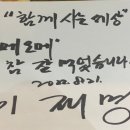 "함께 사는 세상"
메도메
참 잘 먹었습니다
2022.8.21.
이 재 명